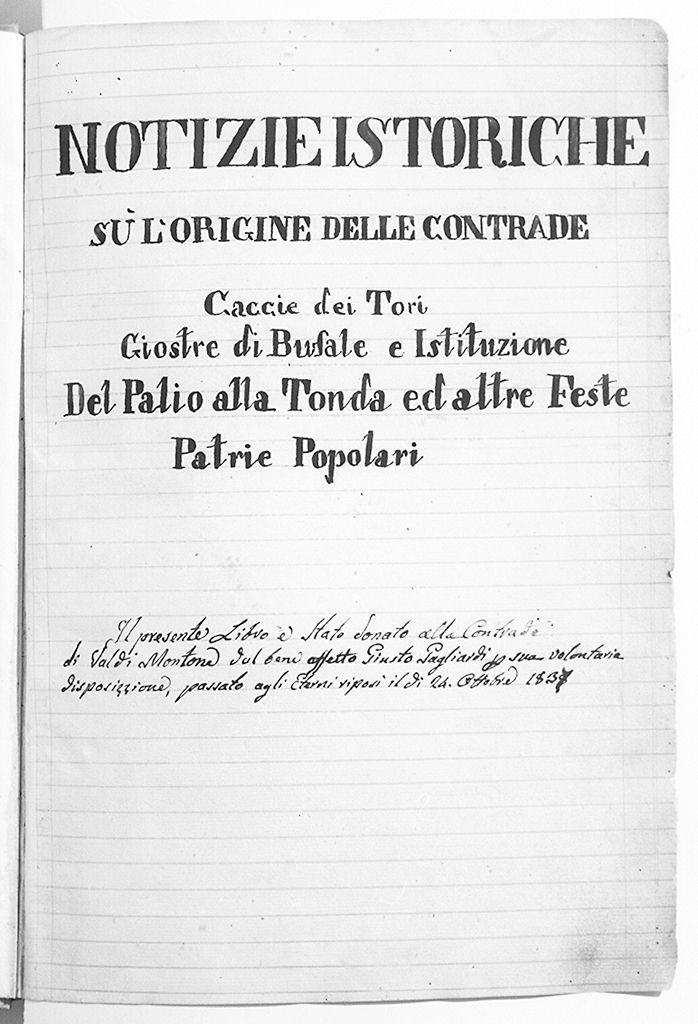 NOTIZIE ISTORICHE
SÙ L'ORIGINE DELLE CONTRADE
Caccie dei Tori
Giostre di Bufale e Istituzione
Del Palio alla Tonda ed altre Feste
Patrie Popolari
Il presente Libro è Stato donato alla Contrade
di Valdi Montone dal bene affetto Giusto Pagliardi p sua volontaria
disposizzione, passato agli Eterni riposi il di 24. Ottobre 1837